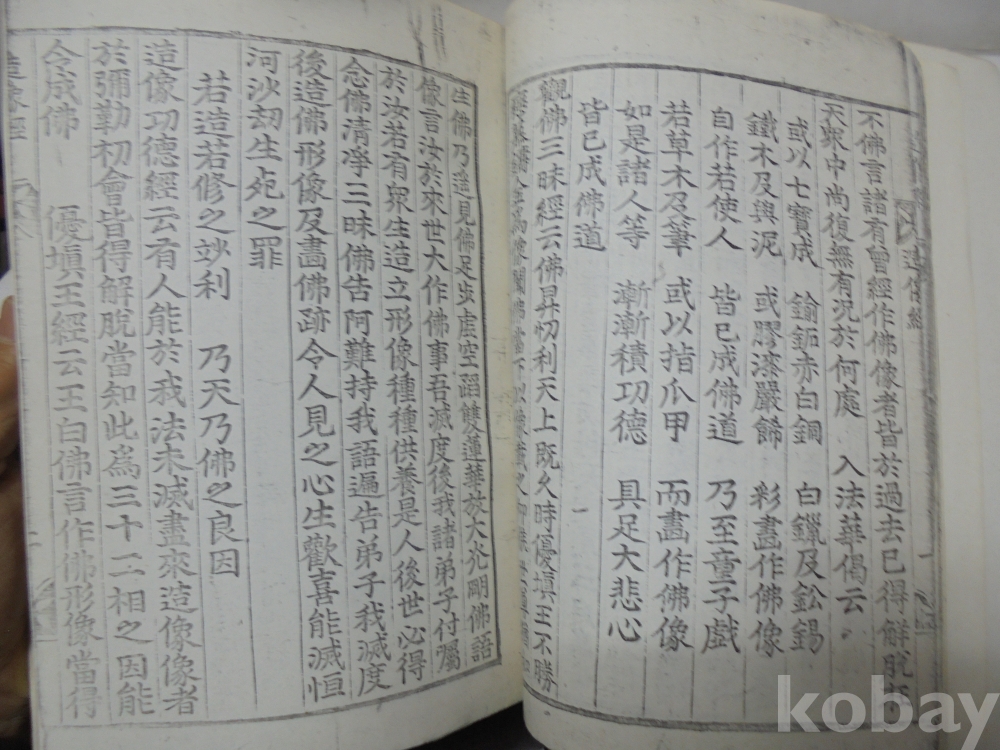 不佛言諸有曾經作佛像者皆於過去已得解脫
天眾中尚復無有況於何處 入法華偈云
或以七寶成 鍮鉐赤白銅 白鑞及鈆錫
鐵木及與泥 或膠漆嚴餙 彩畫作佛像
自作若使人 皆已成佛道 乃至童子戲
若草木及筆 或以指爪甲 而畫作佛像
如是諸人等 漸漸積功德 具足大悲心
皆已成佛道
觀佛三昧經云佛昇忉利天上既久時優塡王不勝
生佛乃遥見佛足步虛空蹈雙蓮華放大光明佛語
像言汝於來世大作佛事吾滅度後我諸弟子付囑
於汝若有眾生造立形像種種供養是人後世必得
念佛清淨三昧佛告阿難持我語遍告弟子我滅度
後造佛形像及畫佛跡令人見之心生歡喜能滅恒
河沙刧生死之罪
若造若修之玅利 乃天乃佛之良因
造像功德經云有人能於我法未滅盡來造像像者
於彌勒初會皆得解脫當知此為三十二相之因能
令成佛 優塡王經云王白佛言作佛形像當得
造像經
kobay